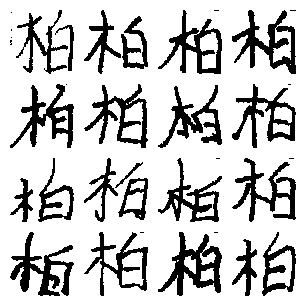 柏柏柏柏
柏柏柏柏
柏柏柏柏
柏柏柏柏